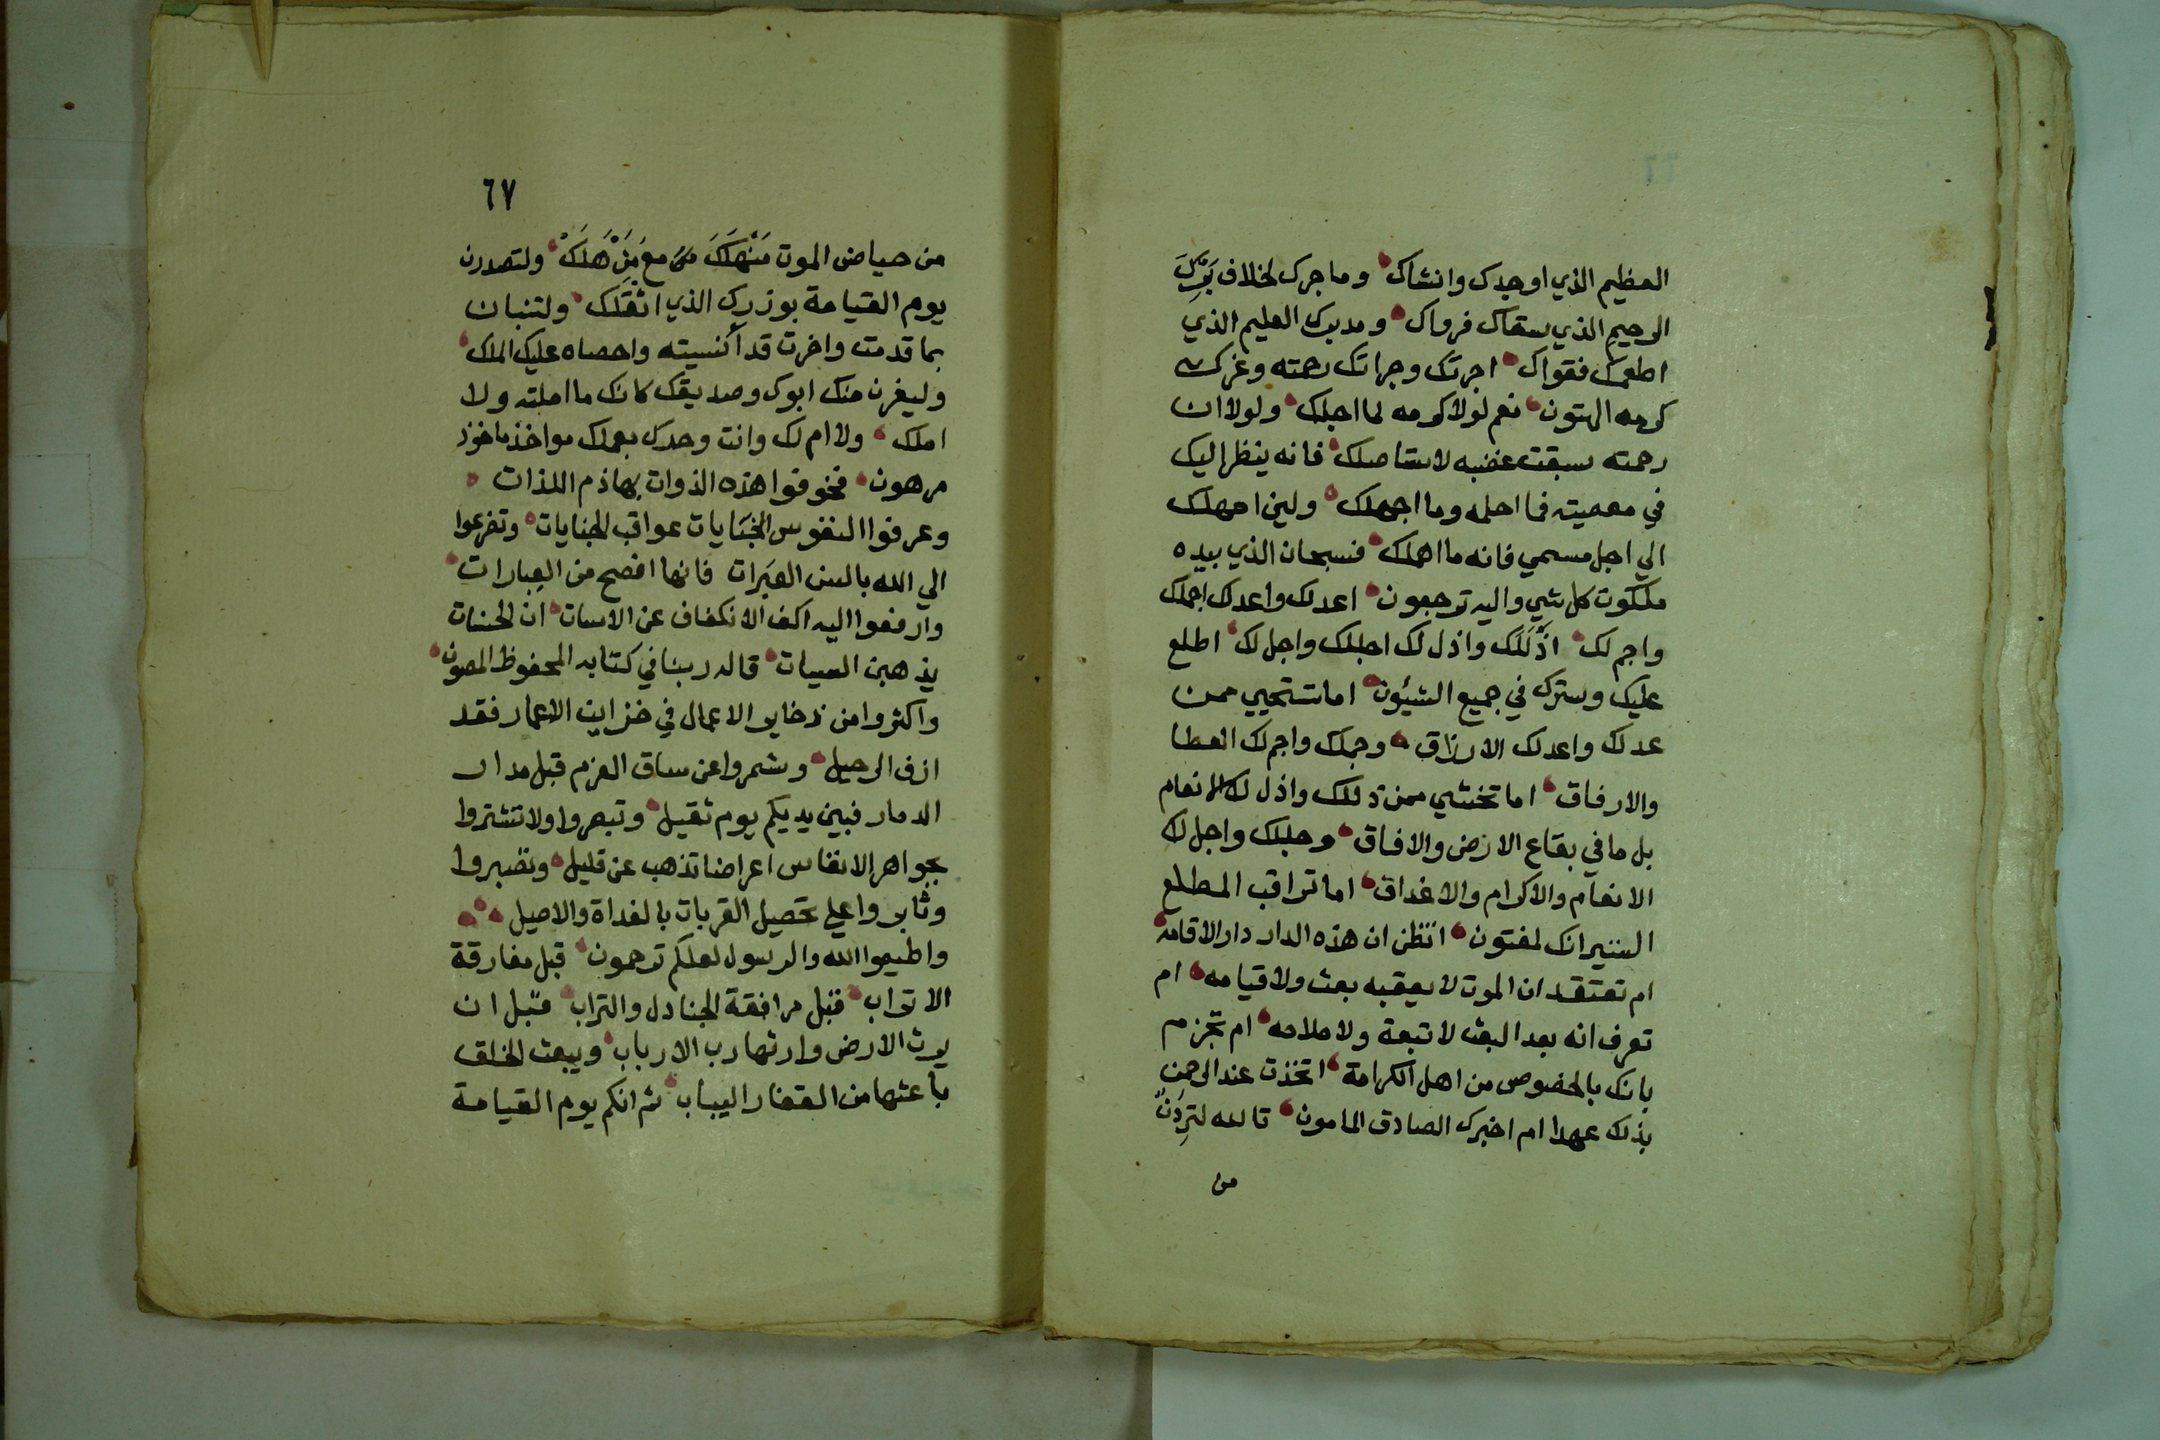 العظيم الذي اوجدك وانشاك وما جرك لخلاف بَرِّكَ
الرحيم الذي سقاك فرواك ومدبرك العليم الذي
اطعمك فقواك اجرتك وجراتك رحمته وغرك
كرمه الهتون نعم لولا كرمه لما اجلك ولولا ان
رحمته سبقت غضبه لاستاصلك فانه ينظر اليك
في معصيته فما احلمه وما اجهلك ولين امهلك
الي اجل مسمي فانه ما اهملك فسبحان الذي بيده
ملكوت كل شي واليه ترجعون اعدلك واعدك اجملك
واجم لك اذللك واذل لك اجللك واجل لك اطلع
عليك وسترك في جميع الشيُون اما تستحيي ممن
عدلك واعدلك الارزاق وجملك واجم لك العطا
والارفاق اما تخشي ممن ذللك واذل لك الانعام
بل ما في بقاع الارض والافاق وجللك واجل لك
الانعام والاكرام والاغداق اما تراقب المطلع
الستير انك لمفتون اتظن ان هذه الدار دار الاقامه
ام تعتقد ان الموت لا يعقبه بعث ولا قيامه ام
تعرف انه بعد البعث لا تبعة ولا ملامه ام تجزم
بانك بالخصوص من اهل الكرامة اتخذت عند الرحمن
بذلك عهدا ام اخبرك الصادق المامون تالله لتردنّ
من
٦٧
من حياض الموت مَنْهَلَكَ مع مَنْ هَلَكْ ولتصدرن
يوم القيامة بوزرك الذي اثقلك ولتنبان
بما قدمت واخرت قد أنسيته واحصاه عليك الملك
وليفرن منك ابوك وصديقك كانك ما املته ولا
املك ولا ام لك وانت وحدك بعملك مواخذ ماخوذ
مرهون فخوفوا هذه الذوات بهاذم اللذات
وعرفوا النفوس الخبَايات عواقب الجنايات وتضرعوا
الي الله بالسن العبَرات فانها افصح من العِبارات
وارفعوا اليه اكف الانكفاف عن الاسات ان الحسنات
يذهبن السيات قاله ربنا في كتابه المحفوظ المصون
واكثروا من ذخاير الاعمال في خزاين الاعمار فقد
ازف الرحيل وشمروا عن ساق العزم قبل مدار
الدمار فبين يديكم يوم ثقيل وتبصروا ولا تشتروا
بجواهر الانفاس اعراضا تذهب عن قليل وتصبروا
وثابروا علي تحصيل القربات بالغداة والاصيل
واطيعوا الله والرسول لعلكم ترحمون قبل مفارقة
الاتراب قبل مرافقة الجنادل والتراب قبل ان
يرث الارض وارثها رب الارباب ويبعث الخلق
باعثها من القفار اليباب ثم انكم يوم القيامة